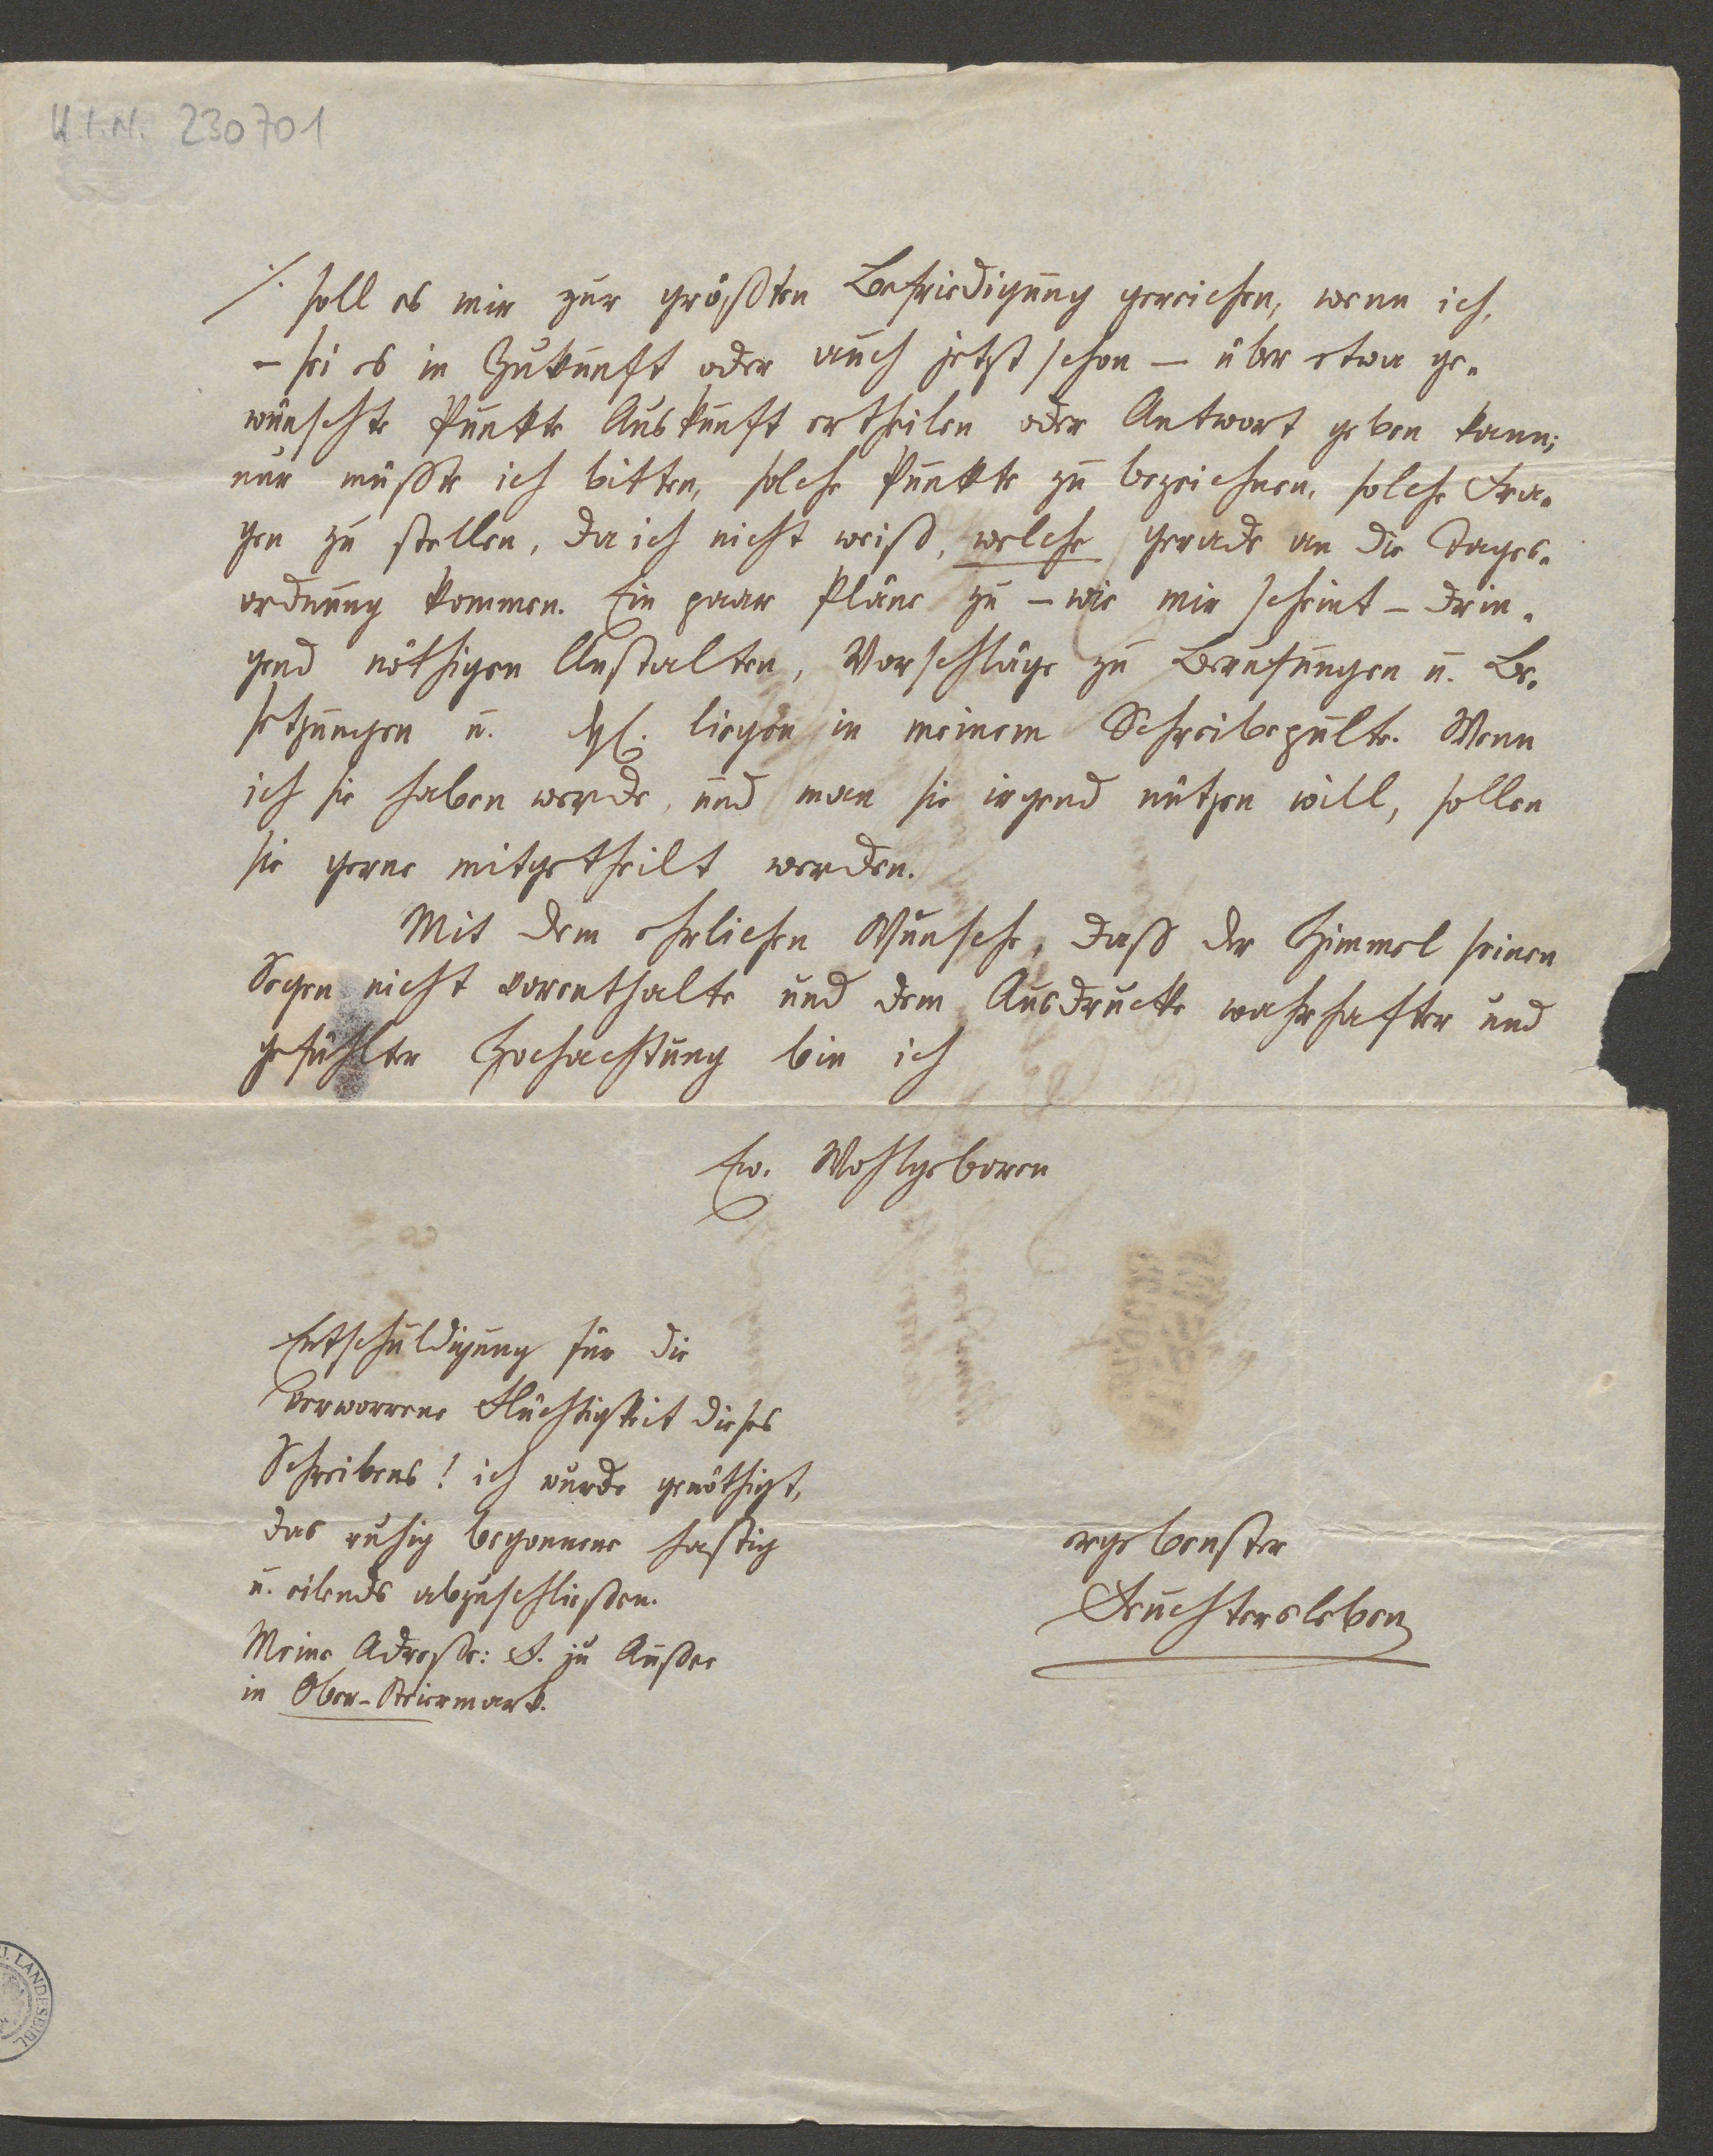 H.I.N. 230701
./. soll es mir zur größten Befriedigung gereichen, wenn ich,
– sei es in Zukunft oder auch jetzt schon – über etwa ge-
wünschte Punkte Auskunft ertheilen oder Antwort geben kann;
nur müßte ich bitten, solche Punkte zu bezeichnen, solche Fra-
gen zu stellen, da ich nicht weiß, welche gerade an die Tages-
ordnung kommen. Ein paar Pläne zu – wie mir scheint – drin-
gend nöthigen Anstalten, Vorschläge zu Berufungen u. Be-
setzungen u. dgl. liegen in meinem Schreibepulte. Wenn
ich sie haben werde, und man sie irgend nützen will, sollen
sie gerne mitgetheilt werden.
Mit dem ehrlichen Wunsche, daß der Himmel seinen
Segen nicht vorenthalte und dem Ausdrucke wahrhafter und
gefühlter Hochachtung bin ich
Ew. Wohlgeboren
Entschuldigung für die
verworrene Flüchtigkeit dieses
Schreibens! ich wurde genöthigt,
das ruhig begonnene hastig
u. eilends abzuschließen.
Meine Adresse: F. zu Aussee
in Ober-Steiermark.
ergebenster
Feuchtersleben
LANDESBIBL.